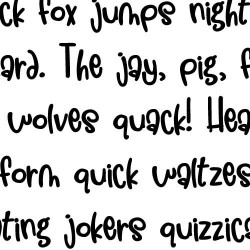 ck fox jumps night
ard. The jay, pig, f
wolves quack! Hea
form quick waltzes
ting jokers quizzica